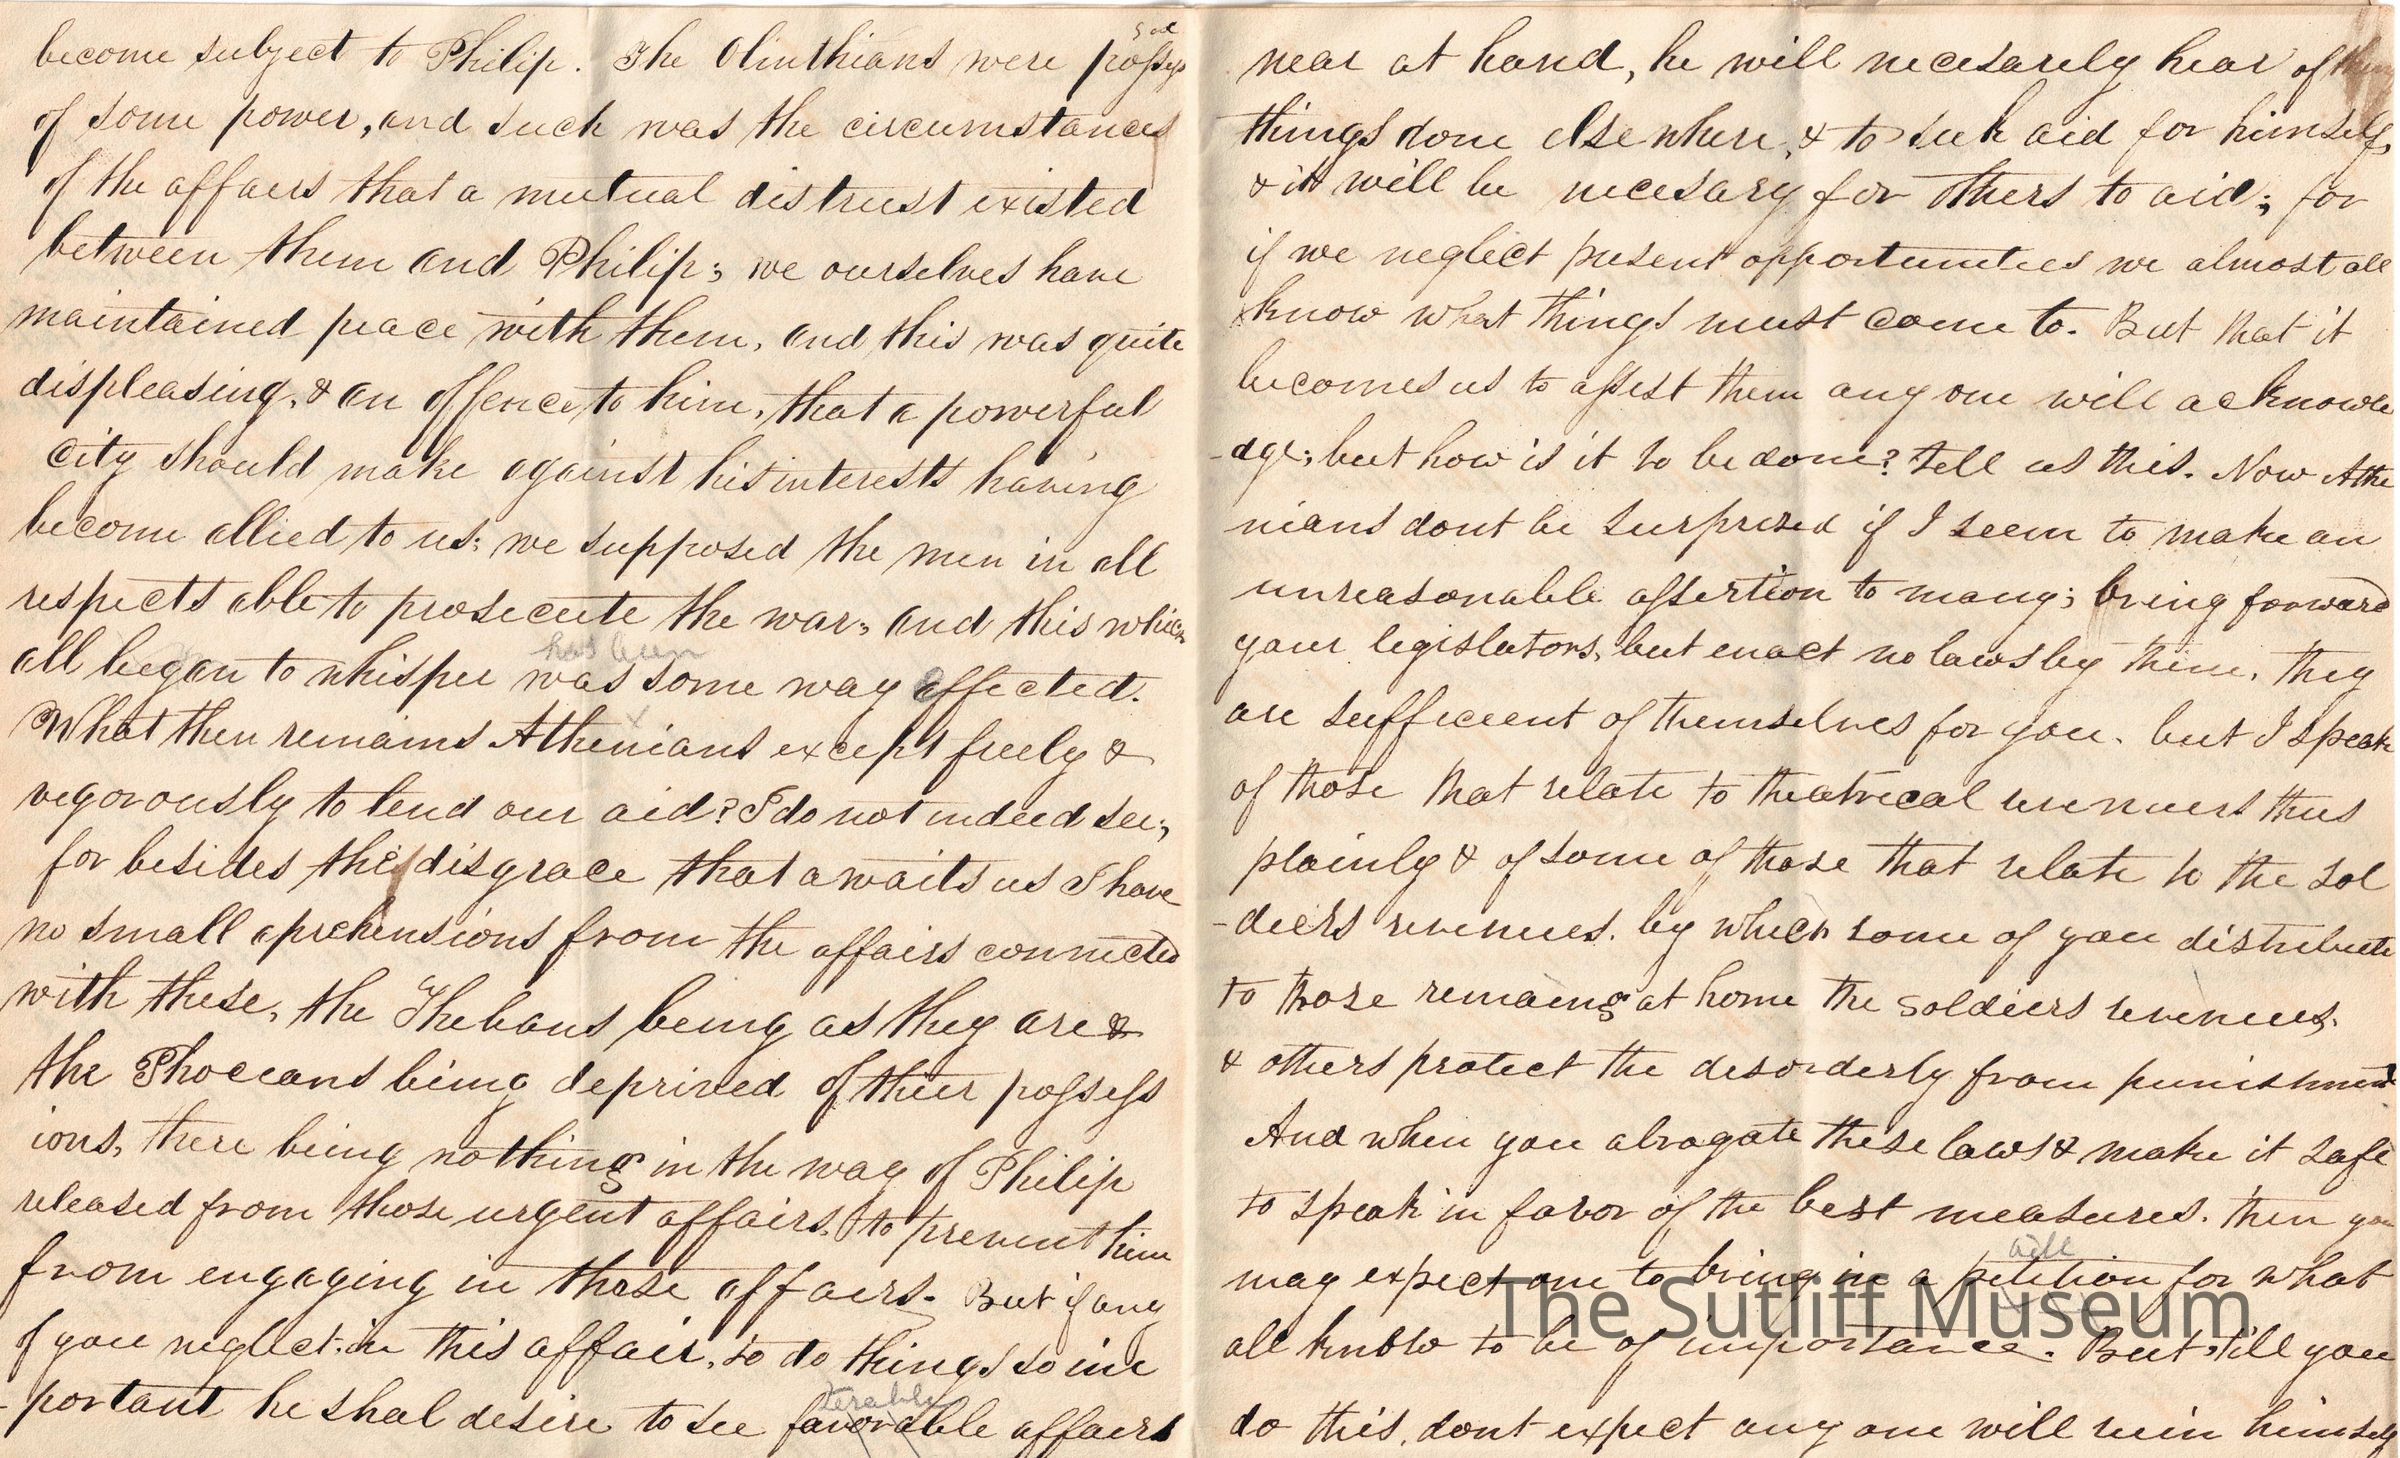 become subject to Philip. The Olinthians were possessed
of some power, and such was the circumstances
of the affairs that a mutual distrust existed
between them and Philip; we ourselves have
maintained peace with them, and this was quite
displeasing, & an offence to him, that a powerful
city should make against his interests having
become allied to us; we supposed the men in all
respects able to prosecute the war; and this which
has been
all began to whisper was some way effected.
What then remains Athenians except freely &
vegorously to lend our aid? I do not indeed see;
for besides the disgrace that awaits us I have
no small aprehensions from the affairs connected
with these, the Thebans being as they are &
the Phocians being deprived of their possess
ions, there being nothing in the way of Philip
released from those urgent affairs, to prevent him
from engaging in these affairs. But if any
of you neglect in this affair, to do things so im
-portant he shal desire to see favorable affairs
terable
near at hand, he will necesarely hear of
things done elsewhere, & to seek aid for himself,
& it will be necesary for others to aid; for
if we neglect present opportunities we almost all
know what things must come to. But that it
becomes us to assist them any one will acknowle
-dge; but how is it to be done? Tell us this. Now Athe
nians dont be surprised if I seem to make an
unreasonable assertion to many; bring forward
your legislators, but enact no laws by them, they
are sufficient of themselves for you. but I speak
of those that relate to theatrical revenues thus
plainly & of some of those that relate to the sol
-diers revenues. by which some of you distribute
to those remaing at home the soldiers revenues,
& others protect the desorderly from punishment
And when you abrogate these laws & make it safe
to speak in favor of the best measures. then you
bill
may expect one to bring in a petition for what
all know to be of importance. But till you
do this, dont expect any one will ruin himself
The Sutliff Museum